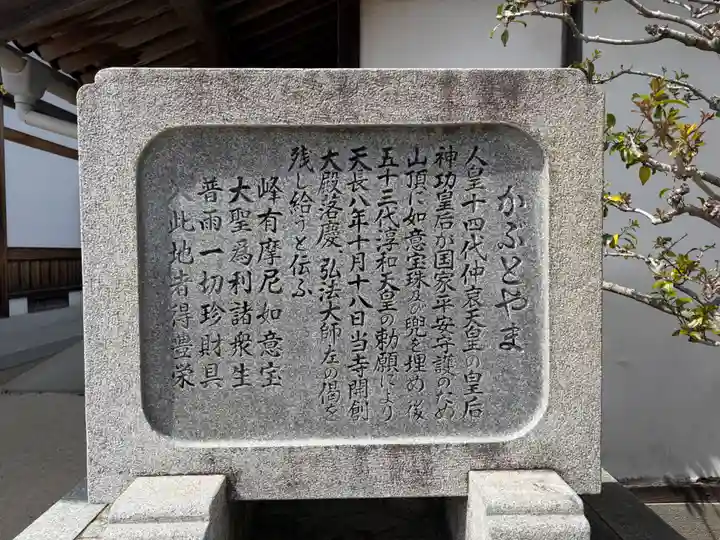 かぶとやま
人皇十四代仲哀天皇の皇后
神功皇后が国家平安守護のため
山頂に如意宝珠及び兜を埋め、後
五十三代淳和天皇の勅願により
天長八年十月十八日当寺開創
大殿落慶、弘法大師左の偈を
残し給うと伝ふ
峰有摩尼如意宝
大聖為利諸衆生
普雨一切珍財具
此地者得豊栄